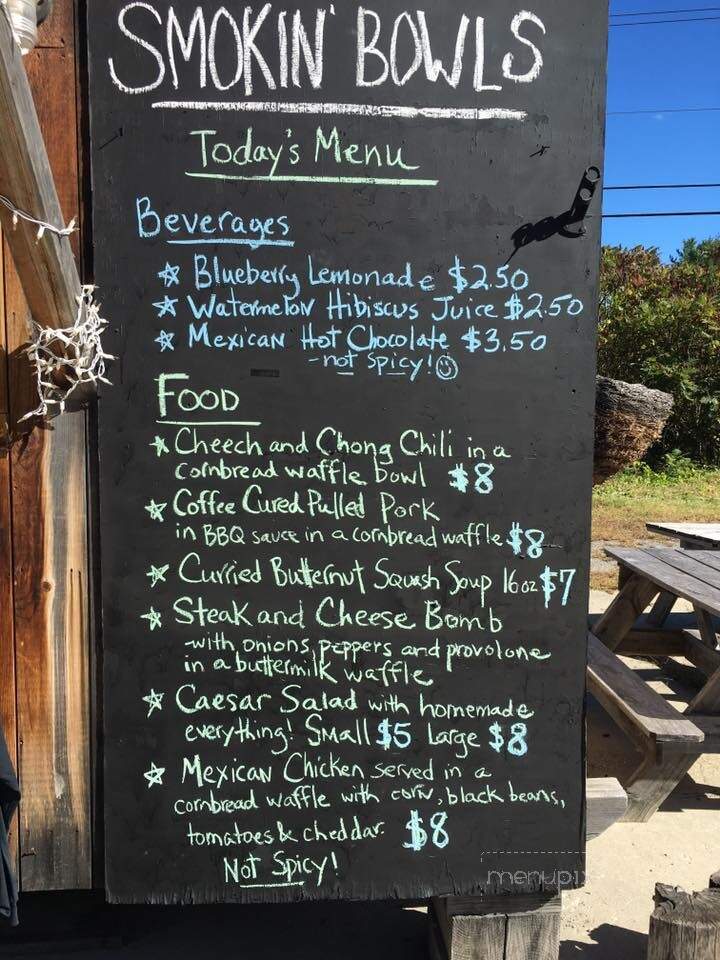 SMOKIN' BOWLS
Today's Menu
Beverages
☆ Blueberry Lemonade $2.50
☆ Watermelon Hibiscus Juice $2.50
☆ Mexican Hot Chocolate $3.50
-not spicy! ☺
FOOD
☆ Cheech and Chong Chili in a
cornbread waffle bowl $8
☆ Coffee Cured Pulled Pork
in BBQ sauce in a cornbread waffle $8
☆ Curried Butternut Squash Soup 16oz $7
☆ Steak and Cheese Bomb
-with onions, peppers and provolone
in a buttermilk waffle
☆ Caesar Salad with homemade
everything! Small $5 Large $8
☆ Mexican Chicken served in a
cornbread waffle with corn, black beans,
tomatoes & cheddar. $8
Not Spicy!
menupix